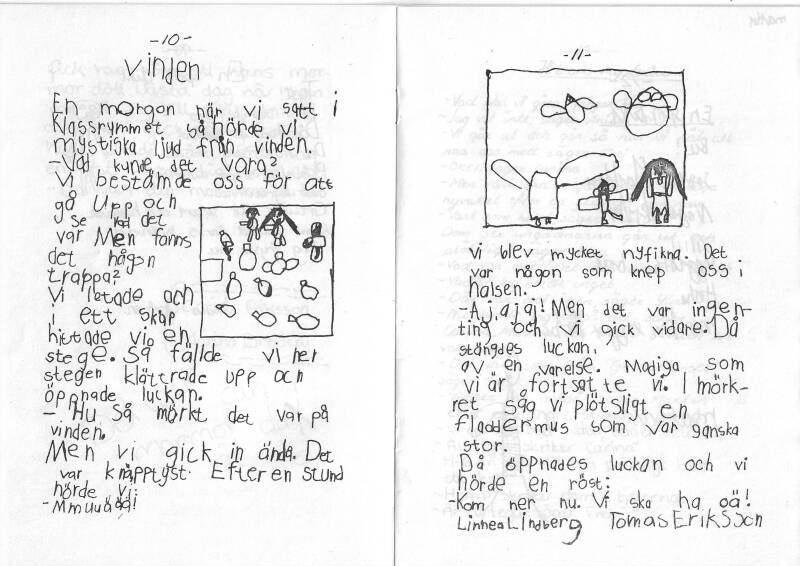 -10-
Vinden
En morgon när vi satt i
klassrymmet så hörde vi
mystiska ljud från vinden.
-Vad kunde det vara?
Vi bestämde oss för att
gå upp och
se vad det
var Men fanns
det någon
trappa?
Vi letade och
i ett skåp
hittade vi en
stege. Så fällde vi ner
stegen klättrade upp och
öppnade luckan.
- Hu så mörkt det var på
vinden.
Men vi gick in ändå. Det
var knäpptyst. Efter en stund
hörde vi:
-Mmuuäää!
-11-
Vi blev mycket nyfikna. Det
var någon som knep oss i
halsen.
-Aj, aj aj! Men det var ingen-
ting och vi gick vidare. Då
stängdes luckan.
av en varelse. Modiga som
vi är fortsatte vi. I mörk-
ret såg vi plötsligt en
fladdermus som var ganska
stor.
Då öppnades luckan och vi
hörde en röst:
-Kom ner nu. Vi ska ha oä!
Linnea Lindberg Tomas Eriksson